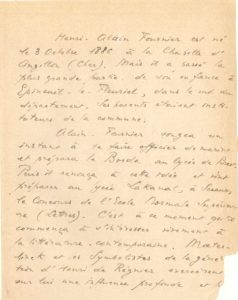 Henri-Alain Fournier est né
le 3 Octobre 1886 à la Chapelle d'
Angillon (Cher). Mais il a passé la
plus grande partie de son enfance à
Epineuil-le-Fleuriel, dans le sud du
département. Ses parents étaient insti-
tuteurs de la commune.
Alain-Fournier songea un
instant à se faire officier de marine
et prépara le Borda, au lycée de Brest.
Puis il renonça à cette idée et vint
préparer au lycée Lakanal, à Sceaux,
le Concours de l'Ecole Normale Supérieu-
re (Lettres). C'est à ce moment qu'il
commença à s'intéresser vivement à
la littérature contemporaine. Maeter-
linck et les Symbolistes de la généra-
tion d'Henri de Régnier exercèrent
sur lui une influence profonde et